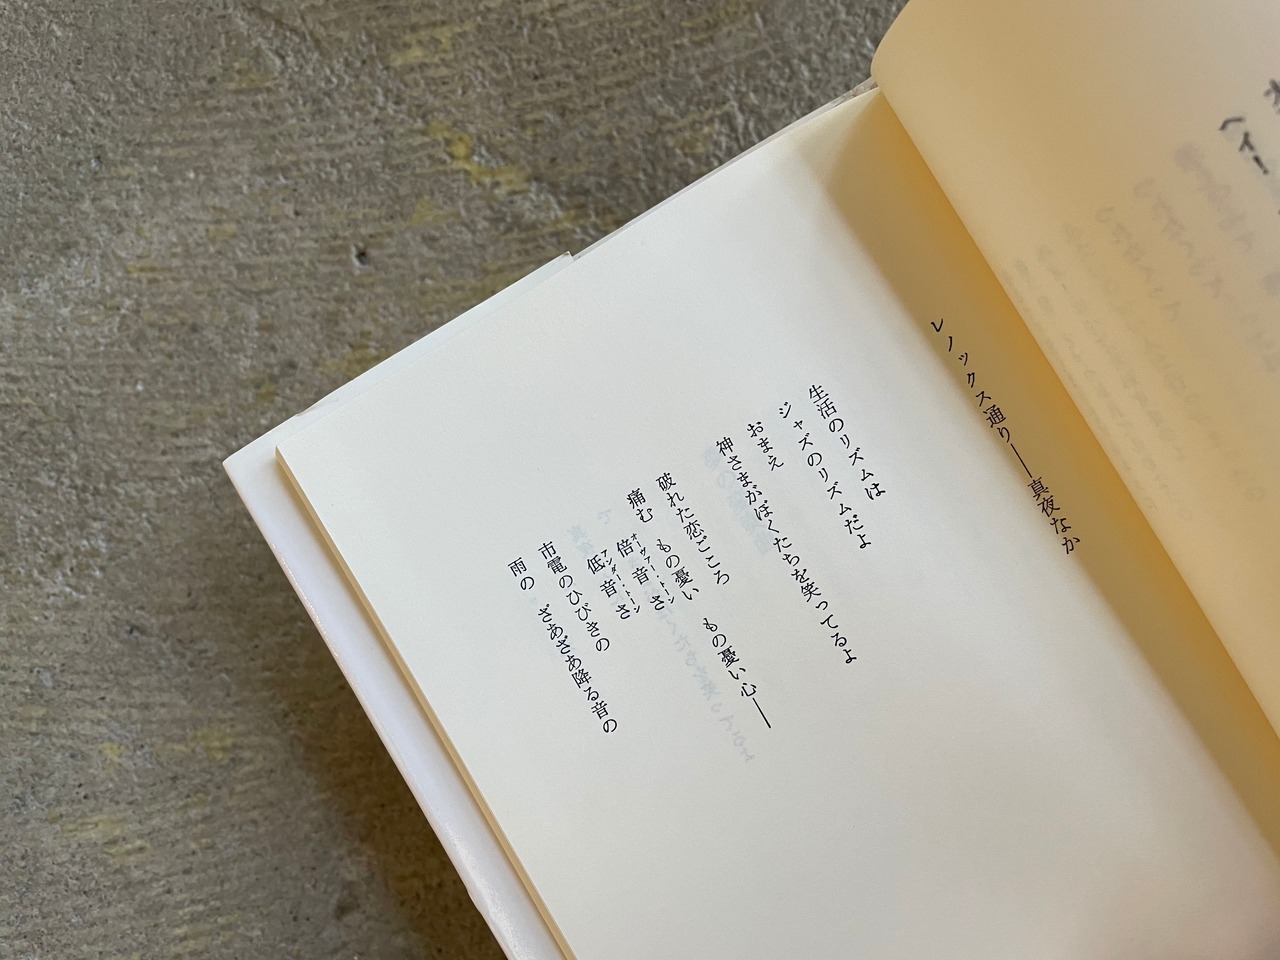 ヘイ！
レノックス通り――真夜なか
生活のリズムは
ジャズのリズムだよ
おまえ
神さまがぼくたちを笑ってるよ
破れた恋ごころ　もの憂い心――
痛む　もの憂い
倍音さ
オーヴァー・トーン
低音さ
アンダー・トーン
市電のひびきの
雨の　ざあざあ降る音の